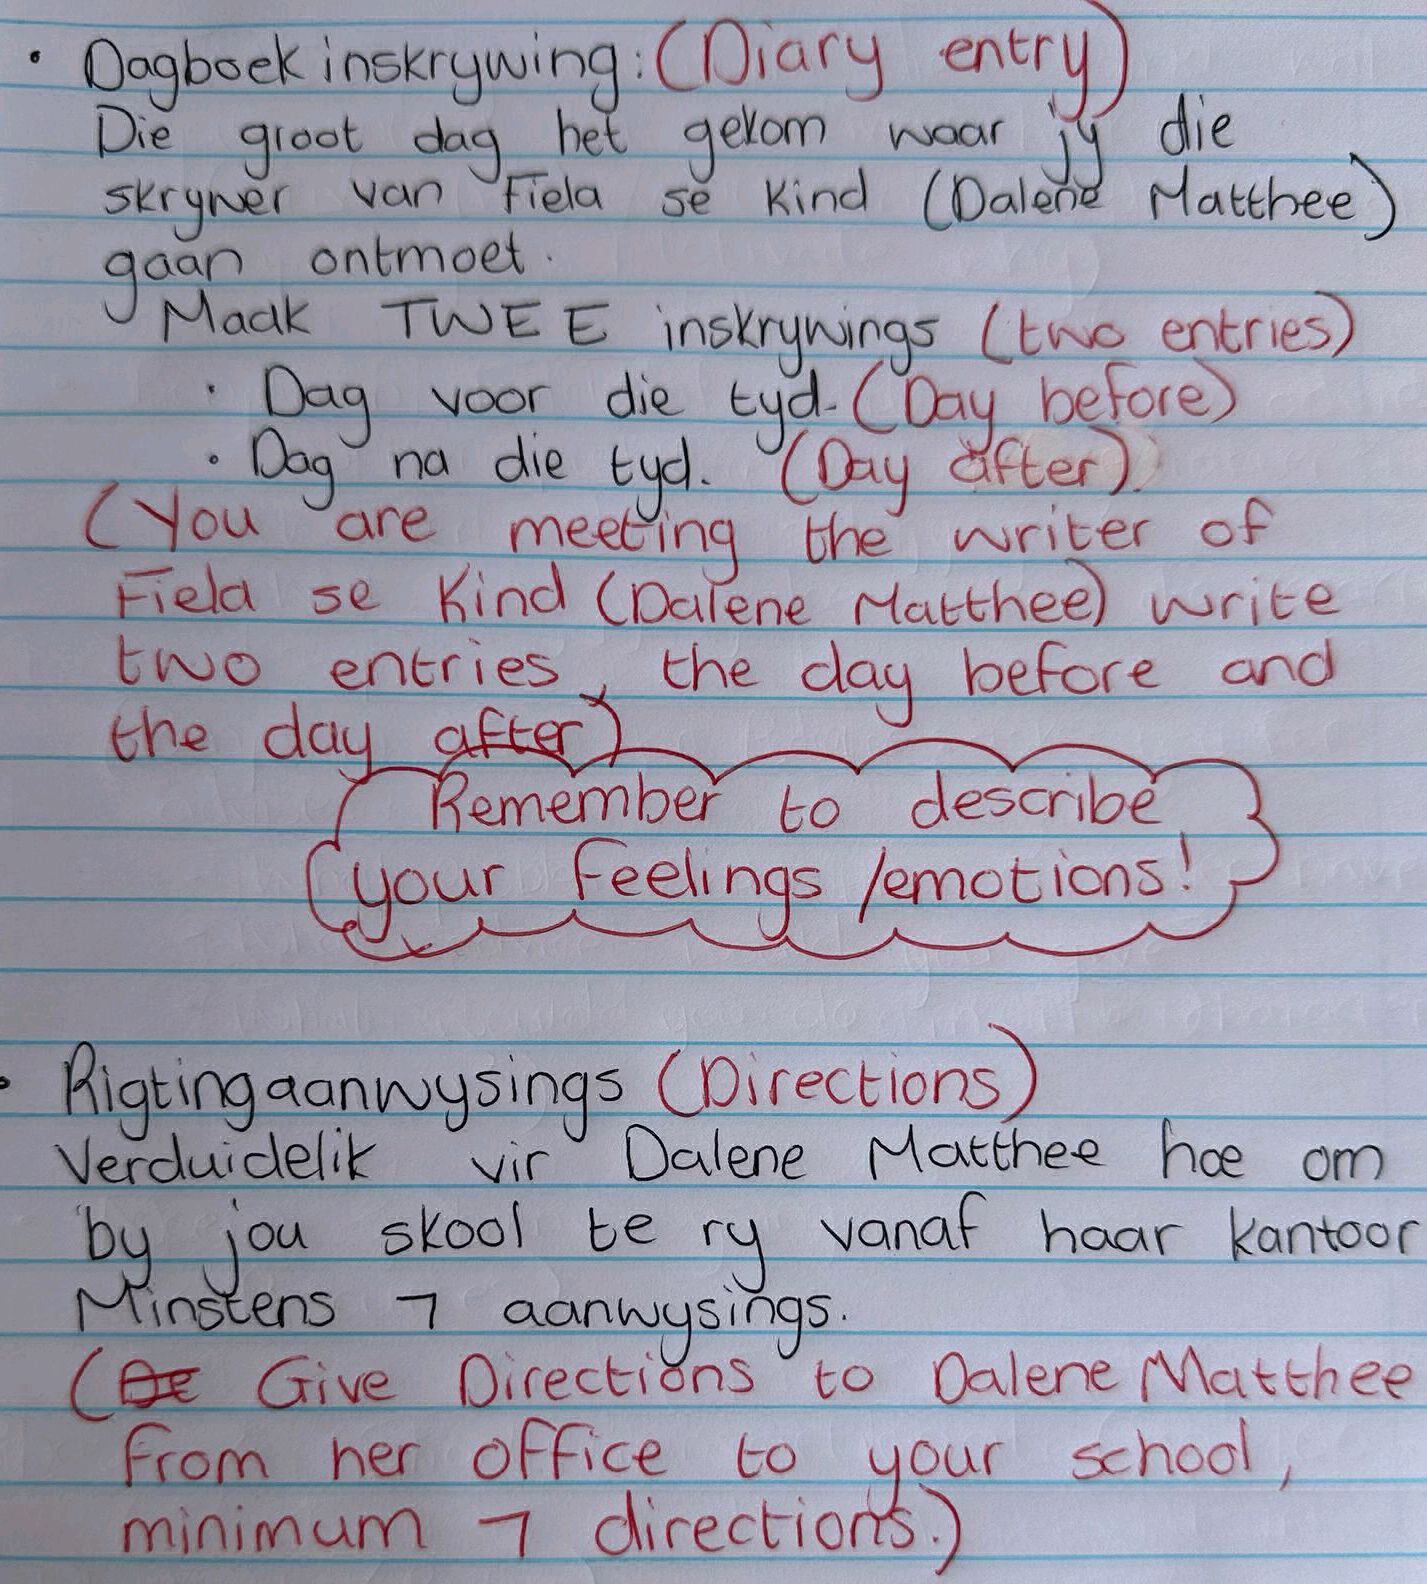 • Dagboek inskrywing: (Diary entry)
Die groot dag het gekom waar jy die
skrywer van Fiela se Kind (Dalene Matthee)
gaan ontmoet.
Maak TWEE inskrywings (two entries)
• Dag voor die tyd. (Day before)
• Dag na die tyd. (Day after)
(You are meeting the writer of
Fiela se Kind (Dalene Matthee) write
two entries, the day before and
the day after)
Remember to describe
your feelings /emotions!
• Rigtingaanwysings (Directions)
Verduidelik vir Dalene Matthee hoe om
by jou skool te ry vanaf haar kantoor
Minstens 7 aanwysings.
( Give Directions to Dalene Matthee
from her office to your school,
minimum 7 directions.)